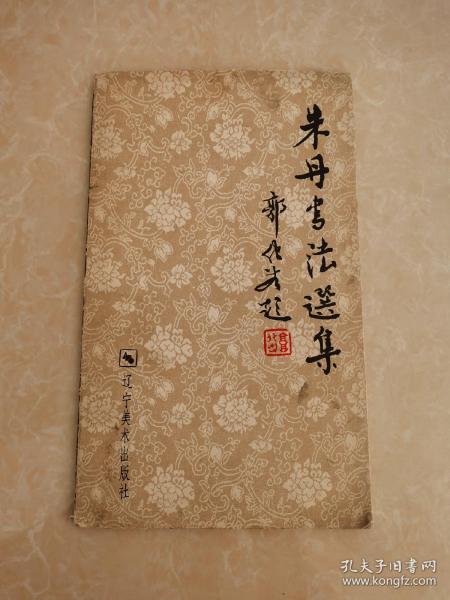 朱丹书法選集
郭化若题
辽宁美术出版社
孔夫子旧书网
www.kongfz.com